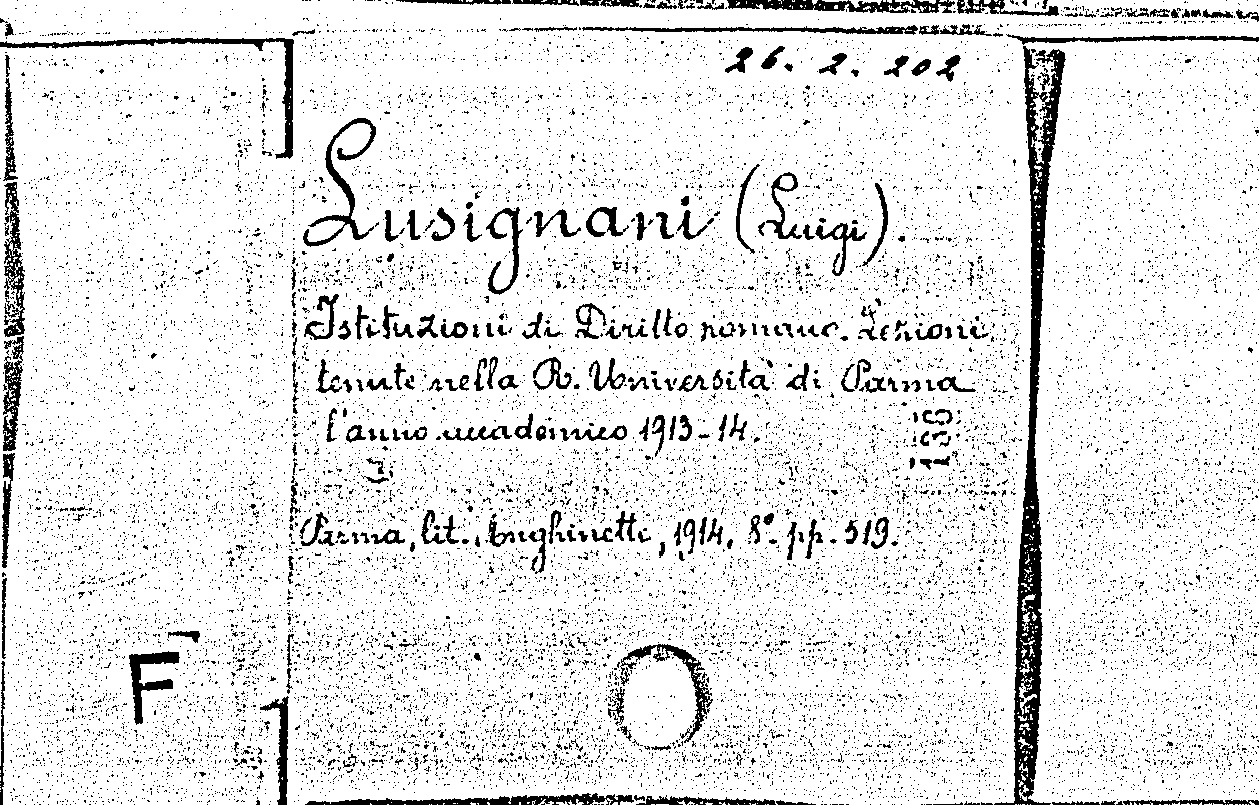 26. 2. 202
Lusignani (Luigi).
Istituzioni di Diritto romano. Lezioni
tenute nella R. Università di Parma
l'anno accademico 1913-14.
Parma, lit. Anghinetti, 1914. 8° pp. 519.
F